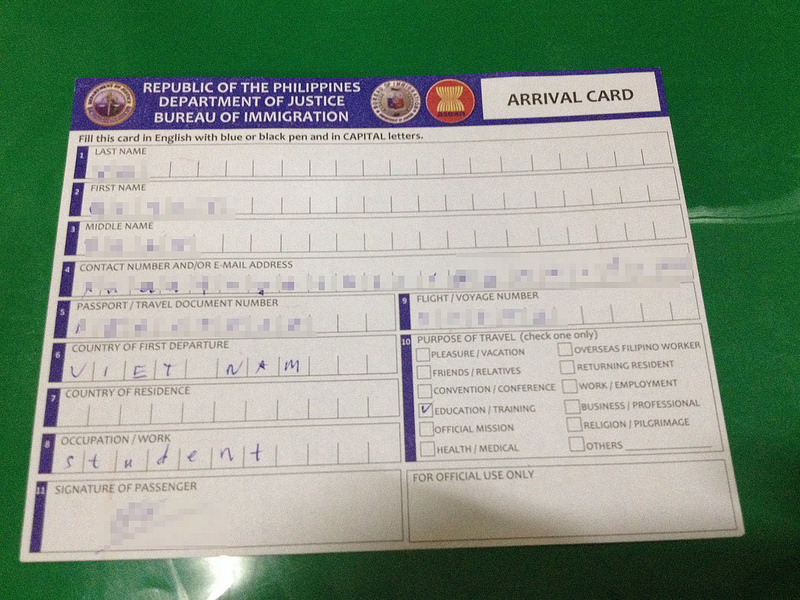 REPUBLIC OF THE PHILIPPINES
DEPARTMENT OF JUSTICE
BUREAU OF IMMIGRATION
ARRIVAL CARD
Fill this card in English with blue or black pen and in CAPITAL letters.
1 LAST NAME
2 FIRST NAME
3 MIDDLE NAME
4 CONTACT NUMBER AND/OR E-MAIL ADDRESS
5 PASSPORT / TRAVEL DOCUMENT NUMBER
6 COUNTRY OF FIRST DEPARTURE
VIET NAM
7 COUNTRY OF RESIDENCE
8 OCCUPATION / WORK
student
9 FLIGHT / VOYAGE NUMBER
10 PURPOSE OF TRAVEL (check one only)
PLEASURE / VACATION
FRIENDS / RELATIVES
CONVENTION / CONFERENCE
EDUCATION / TRAINING
OFFICIAL MISSION
HEALTH / MEDICAL
OVERSEAS FILIPINO WORKER
RETURNING RESIDENT
WORK / EMPLOYMENT
BUSINESS / PROFESSIONAL
RELIGION / PILGRIMAGE
OTHERS
11 SIGNATURE OF PASSENGER
FOR OFFICIAL USE ONLY